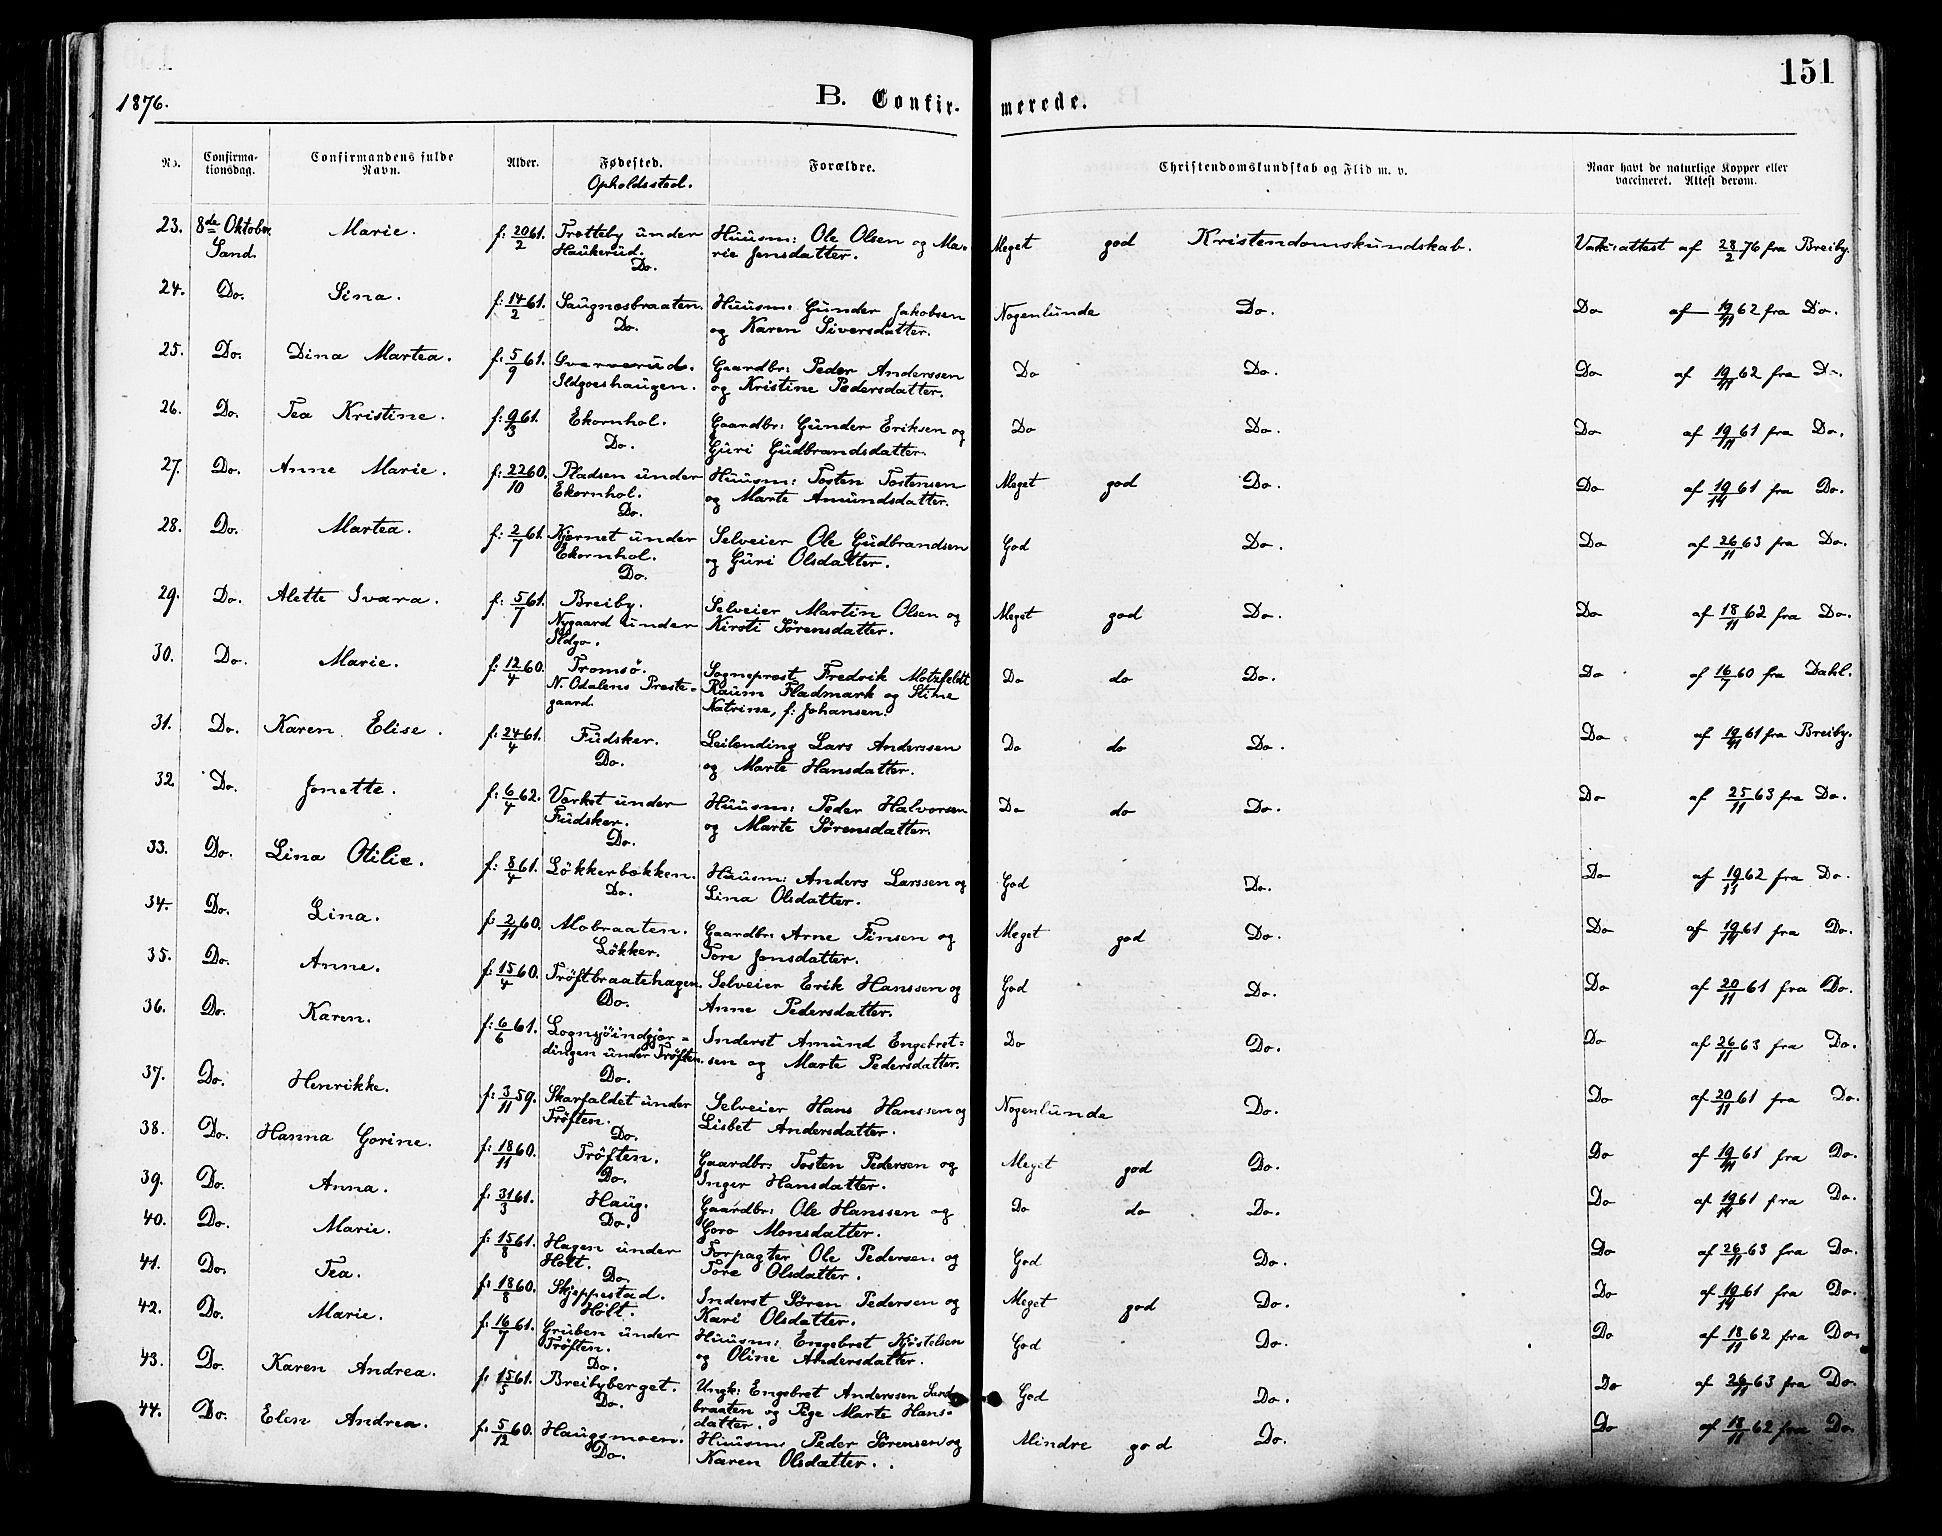 151
1876.
B. Confirmerede.
No. Confirmationsdag. Confirmandens fulde Navn. Alder. Fødested. Opholdssted. Forældre. Christendomskundskab og Flid m. v. Naar havt de naturlige Kopper eller vaccineret. Attest derom.
23. 8de Oktober Sand. Marie. f: 20/2 61. Trætteby under Haukerud. Do. Huusm: Ole Olsen og Marie Jensdatter. Meget god Kristendomskundskab. Vaksattest af 28/2 76 fra Breiby.
24. Do. Sina. f: 14/2 61. Saugnæsbraaten. Do. Huusm: Gunder Jakobsen og Karen Siversdatter. Nogenlunde Do. Do af 19/11 62 fra Do.
25. Do. Dina Martea. f: 5/9 61. Sværverud. Ildgoeshaugen. Gaardbr: Peder Anderssen og Kristine Pedersdatter. Do Do. Do af 19/11 62 fra Do.
26. Do. Tea Kristine. f: 9/3 61. Ekornhol. Do. Gaardbr: Gunder Eriksen og Guri Gudbrandsdatter. Do Do. Do af 19/11 61 fra Do.
27. Do. Anne Marie. f: 22/10 60. Pladsen under Ekornhol. Do. Huusm: Tosten Tostensen og Marte Amundsdatter. Meget god Do. Do af 19/11 61 fra Do.
28. Do. Martea. f: 2/7 61. Kjernet under Ekornhol. Do. Selveier Ole Gudbrandsen og Guri Olsdatter. God Do. Do af 26/11 63 fra Do.
29. Do. Alette Svara. f: 5/7 61. Breiby. Nygaard under Ildgo. Selveier Martin Olsen og Kirsti Sørensdatter. Meget god Do. Do af 18/11 62 fra Do.
30. Do. Marie. f: 12/4 60. Tromsö. N. Odalens Prestegaard. Sogneprest Fredrik Motzfeldt Raum Fladmark og Stine Katrine, f: Johansen. Do do Do. Do af 16/7 60 fra Dahl.
31. Do. Karen Elise. f: 24/4 61. Fudsker. Do. Leilending Lars Anderssen og Marte Hansdatter. Do do Do. Do af 19/11 61 fra Breiby.
32 Do. Jonette. f: 6/4 62. Værket under Fudsker. Do. Huusm: Peder Halvorsen og Marte Sørensdatter. Do do Do. Do af 25/11 63 fra Do.
33. Do. Lina Otilie. f: 8/4 61. Løkkerbækken. Do. Huusm: Anders Larssen og Lina Olsdatter. God Do. Do af 19/11 62 fra Do.
34. Do. Lina. f: 2/11 60. Mobraaten. Løkker. Gaardbr: Arne Finsen og Tore Jonsdatter. Meget god Do. Do af 19/11 61 fra Do.
35. Do. Anne. f: 15/4 60. Trøftbraatehagen. Do. Selveier Erik Hanssen og Anne Pedersdatter. God Do. Do af 20/11 61 fra Do.
36. Do. Karen. f: 6/6 61. Lognsjöindgjærdingen under Trøften. Do. Inderst Amund Engebretsen og Marte Pedersdatter. Do Do. Do af 26/11 63 fra Do.
37. Do. Henrikke. f: 3/11 59. Skarfaldet under Trøften. Do. Selveier Hans Hanssen og Lisbet Andersdatter. Nogenlunde Do. Do af 20/11 61 fra Do.
38. Do. Hanna Gorine. f: 18/11 60. Trøften. Do. Gaardbr: Tosten Pedersen og Inger Hansdatter. Meget god Do. Do af 19/11 61 fra Do.
39. Do. Anna. f: 31/3 61. Haug. Do. Gaardbr: Ole Hanssen og Goro Monsdatter. Do do Do. Do af 19/11 61 fra Do.
40. Do. Marie. f: 15/8 61. Hagen under Holt. Do. Forpagter Ole Pedersen og Tore Olsdatter. God Do. Do af 26/11 63 fra Do.
41. Do. Tea. f: 18/8 60. Skjeppestad. Holt. Inderst Søren Pedersen og Kari Olsdatter. Meget god Do. Do af 19/11 61 fra Do.
42. Do. Marie. f: 16/7 61. Gruben under Trøften. Do. Huusm: Engebret Kjøstelsen og Oline Andersdatter. God Do. Do af 18/11 62 fra Do.
43. Do. Karen Andrea. f: 15/5 61. Breibyberget. Do. Ungk: Engebret Anderssen Sandbraaten og Pige Marte Hansdatter. God Do. Do af 26/11 63 fra Do.
44. Do. Elen Andrea. f: 5/12 60. Haugsmoen. Do. Huusm: Peder Sørensen og Karen Olsdatter. Mindre god Do. Do af 18/11 62 fra Do.